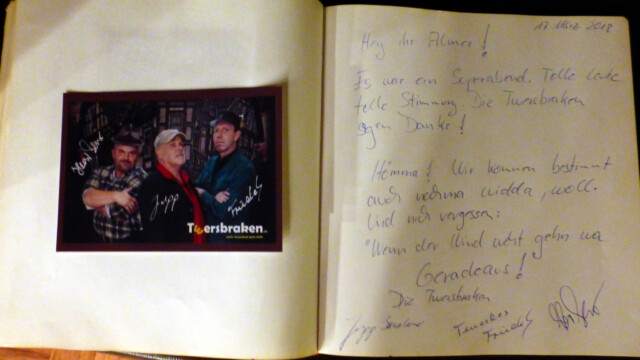 Jupp
Friedel
Twersbraken
17. März 2018
Hey ihr Ahlener!
Es war ein Superabend. Tolle Leute
tolle Stimmung. Die Twersbraken
sagen Danke!
Hömma! Wir kommen bestimmt
auch nochma widda, woll.
Und nich vergessen:
"Wenn der Wind weht gehn wa
Geradeaus!
Die Twersbraken
Jupp
Friedel